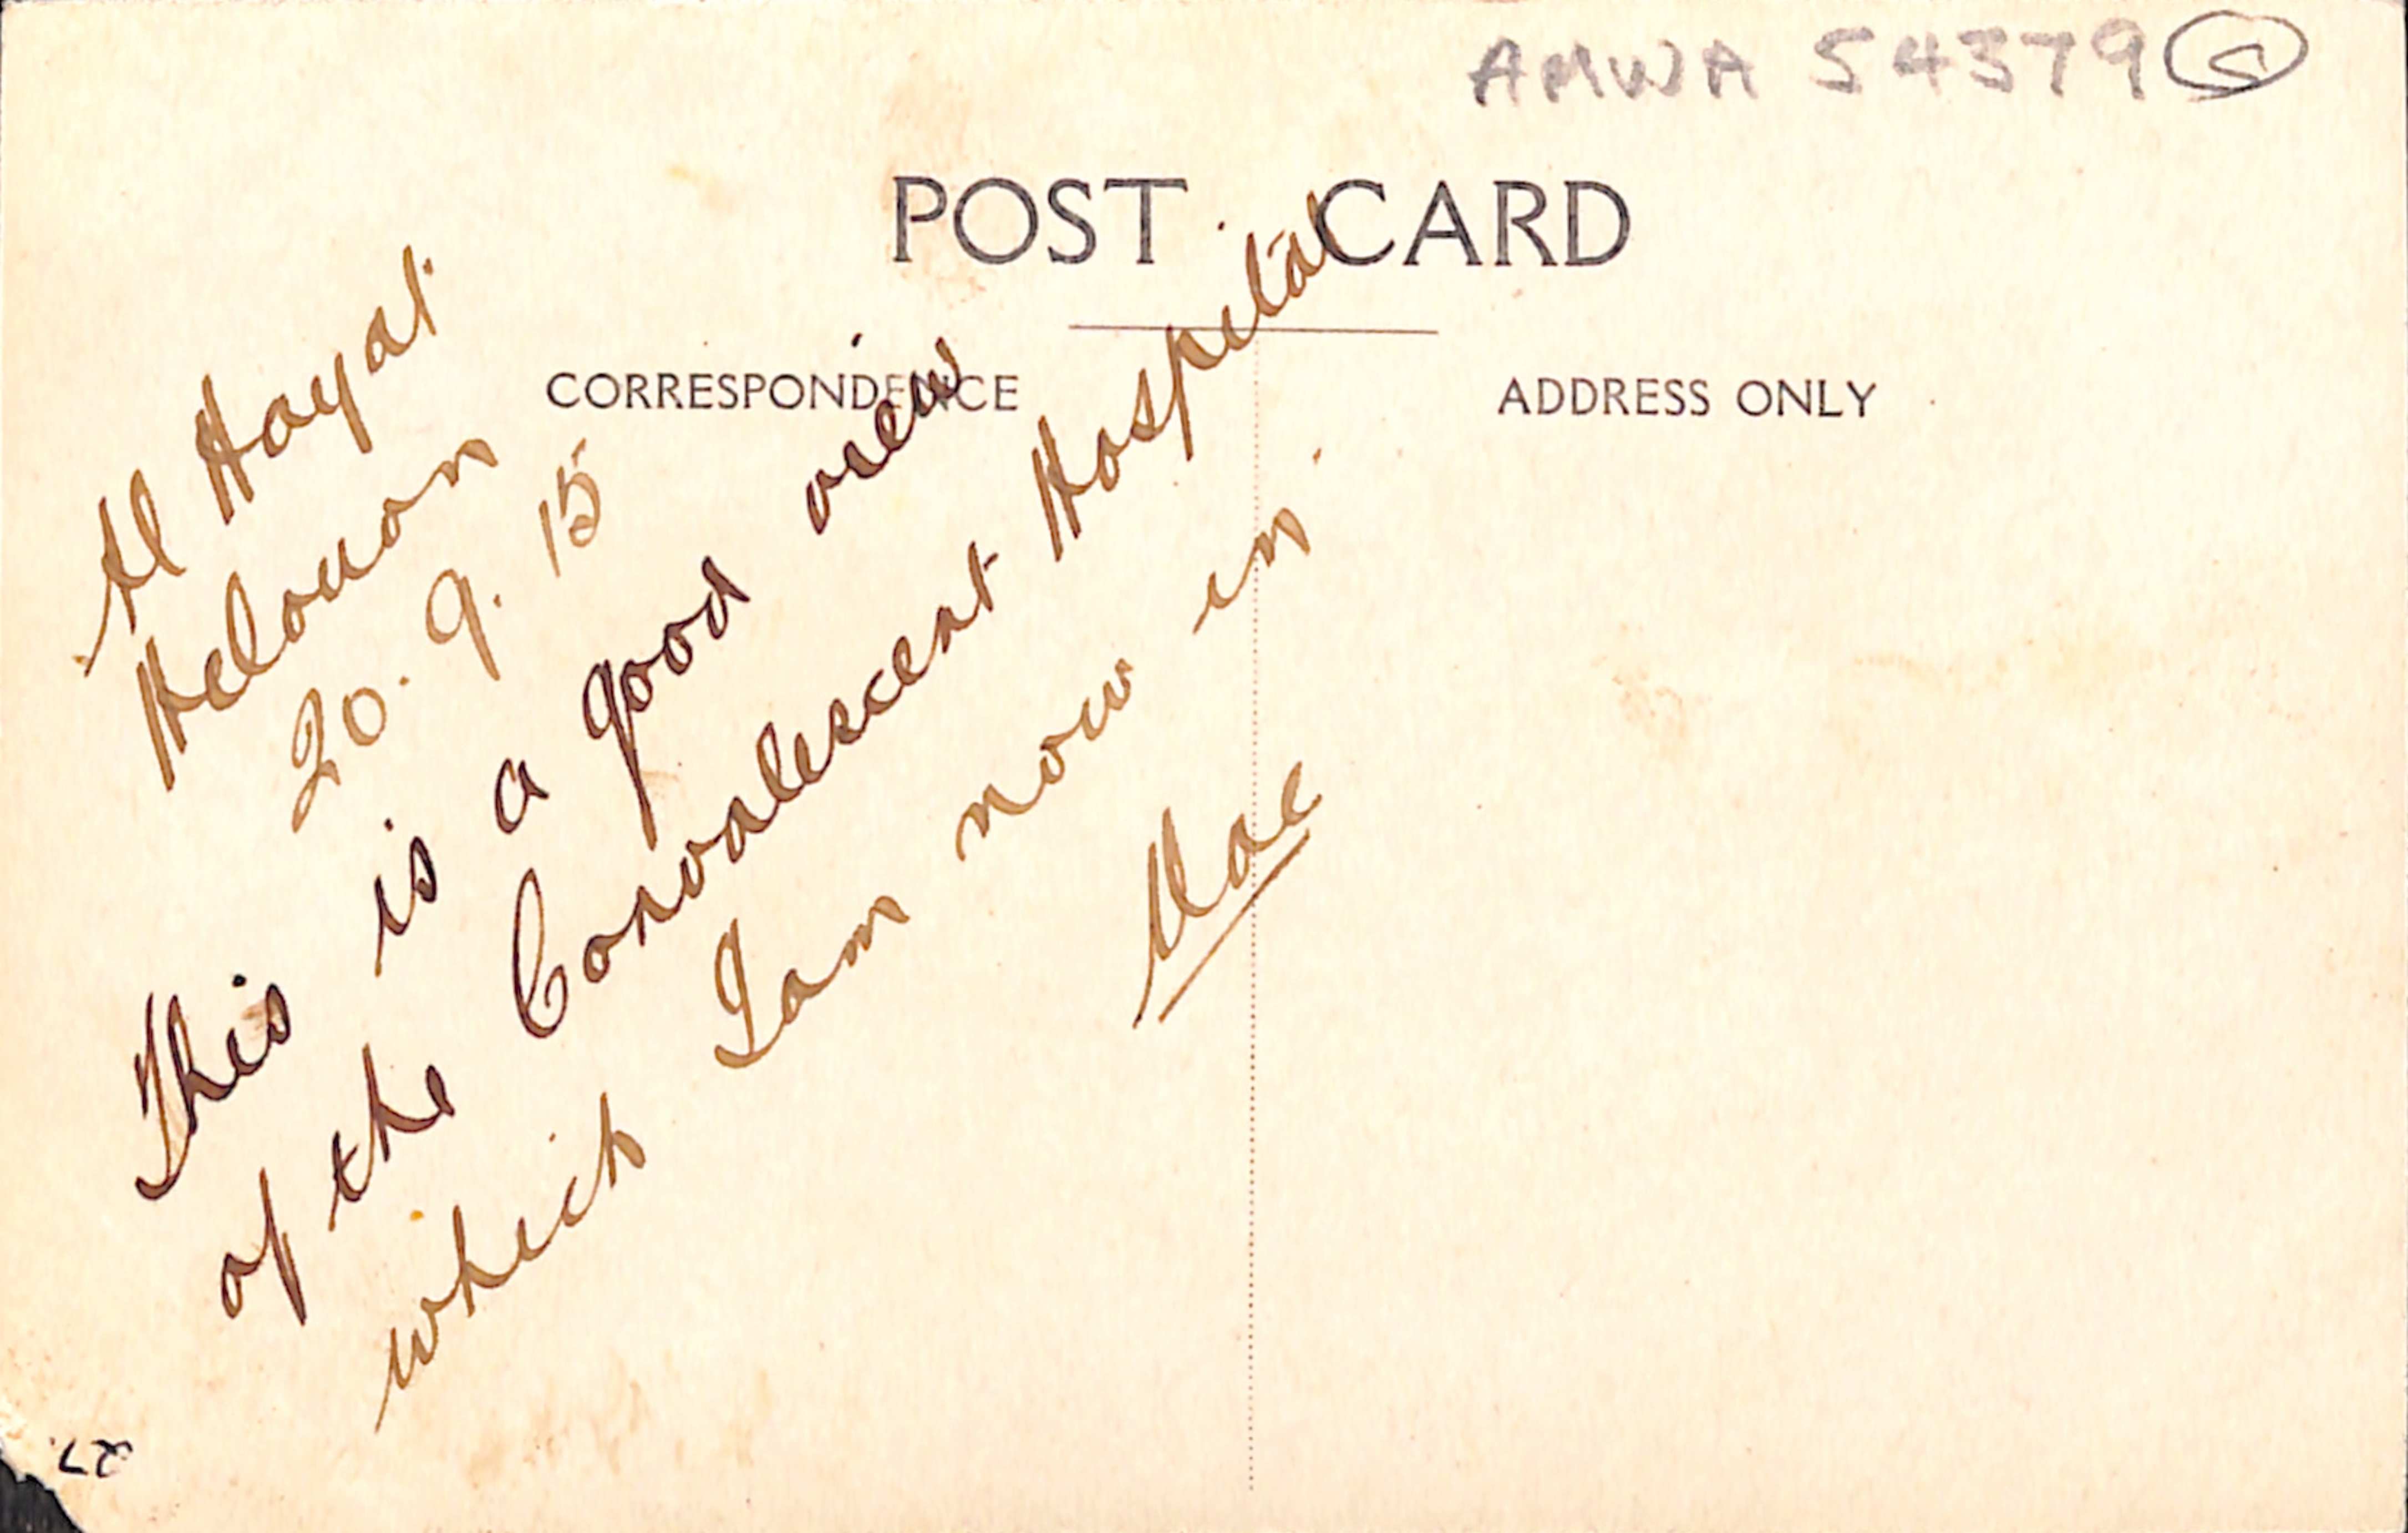 AMWA 54379 5
POST CARD
CORRESPONDENCE
ADDRESS ONLY
Al Hayat
Helouan
20. 9. 15
This is a good view
of the Convalescent Hospital
which I am now in.
Mac
27.